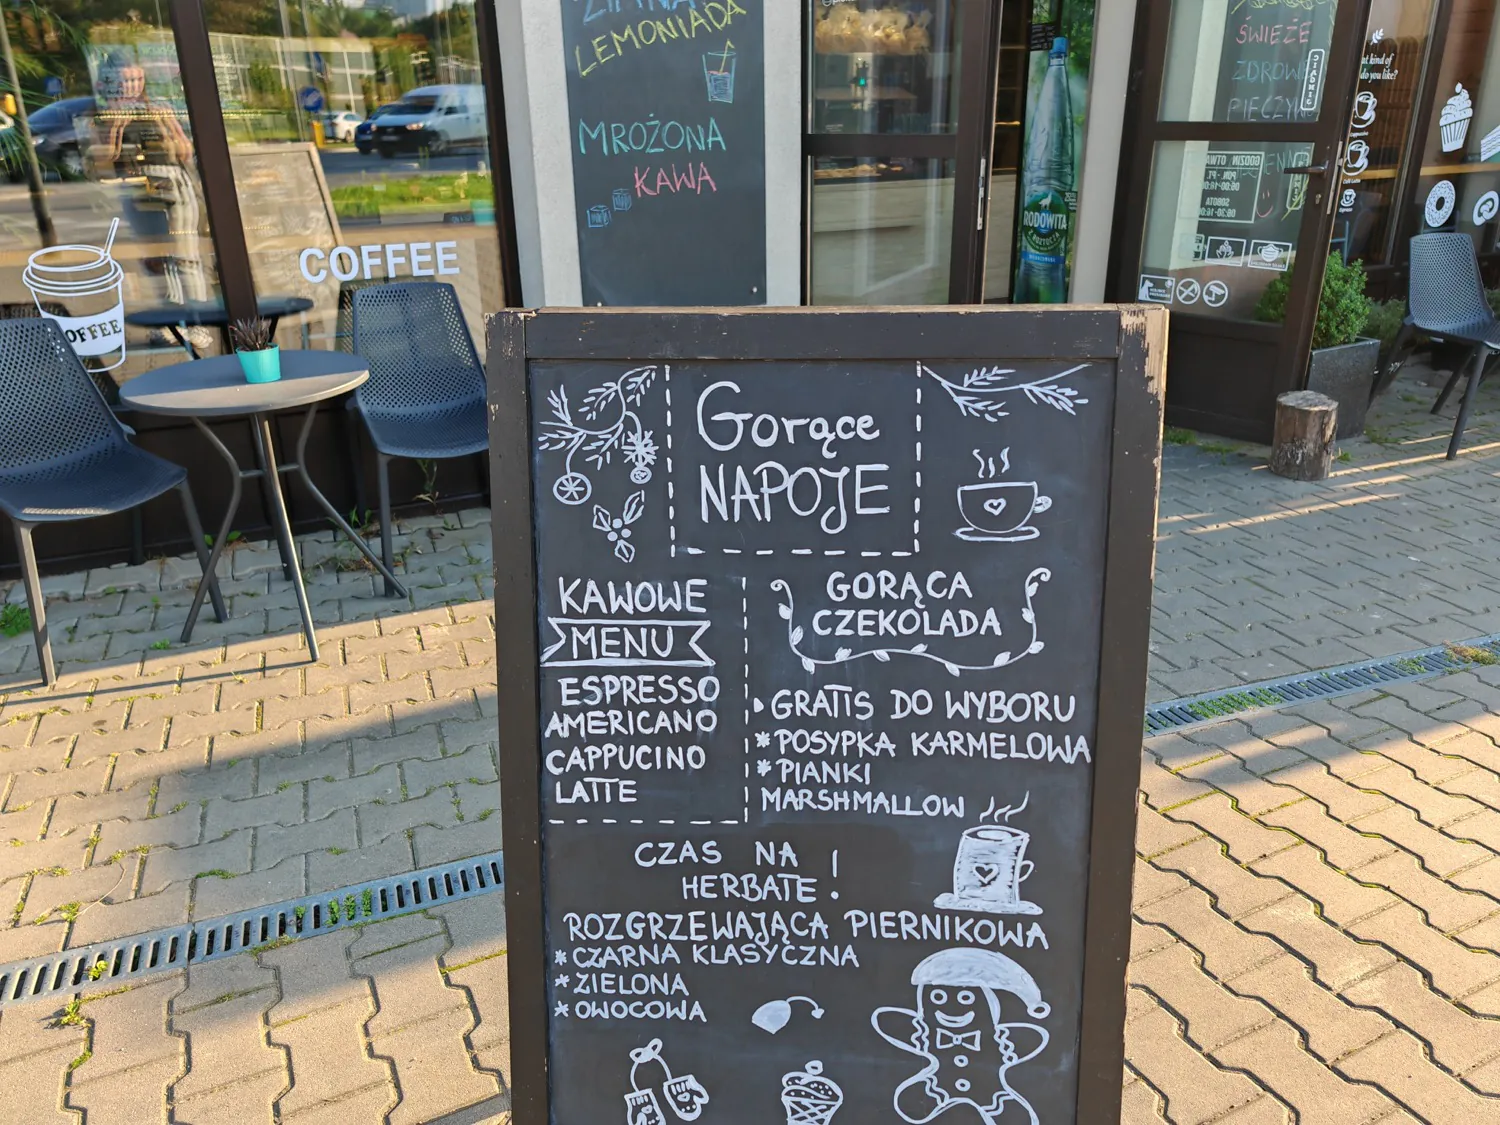 ZIMNA
LEMONIADA
MROŻONA
KAWA
COFFEE
COFFEE
RODOWITA
Z ROZTOCZA
ŚWIEŻE
ZDROWE
PIECZYW
do you like?
GODZIN OTWAR
PON - PT.
SOBOTA
Gorące
NAPOJE
KAWOWE
MENU
ESPRESSO
AMERICANO
CAPPUCINO
LATTE
GORĄCA
CZEKOLADA
GRATIS DO WYBORU
* POSYPKA KARMELOWA
* PIANKI
MARSHMALLOW
CZAS NA
HERBATE!
ROZGRZEWAJĄCA PIERNIKOWA
* CZARNA KLASYCZNA
* ZIELONA
* OWOCOWA